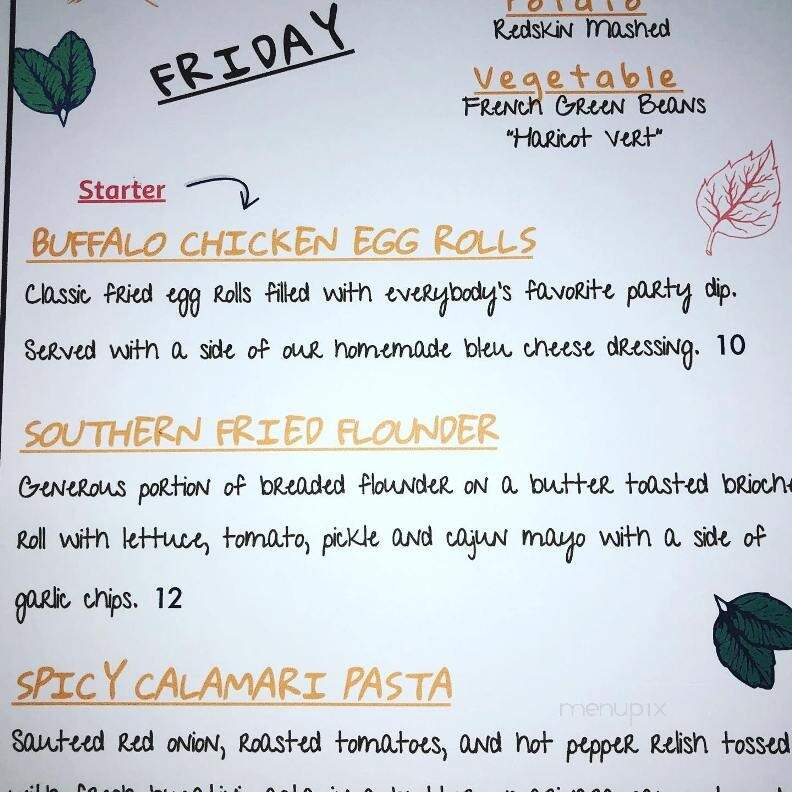 FRIDAY
Potato
Redskin Mashed
Vegetable
French Green Beans
"Haricot Vert"
Starter
BUFFALO CHICKEN EGG ROLLS
Classic fried egg rolls filled with everybody's favorite party dip.
Served with a side of our homemade bleu cheese dressing. 10
SOUTHERN FRIED FLOUNDER
Generous portion of breaded flounder on a butter toasted brioche
roll with lettuce, tomato, pickle and cajun mayo with a side of
garlic chips. 12
SPICY CALAMARI PASTA
menupix
Sauteed red onion, roasted tomatoes, and hot pepper relish tossed
with fresh